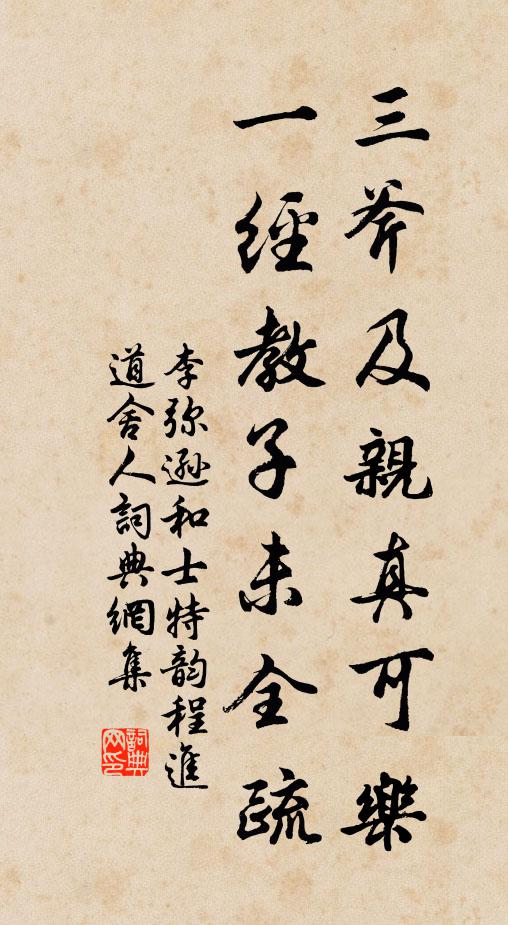 三斧及親真可樂
一經教子未全疏
李弥遜和士特韵程進
道舍人詞典網集
詞典
网印